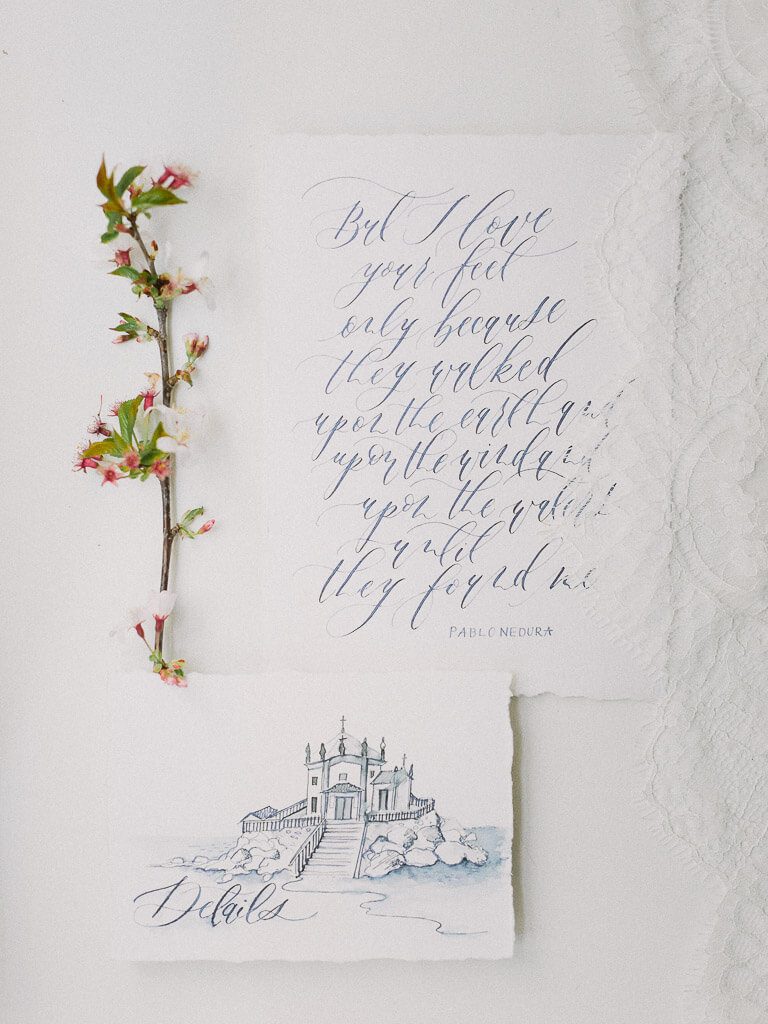 But I love
your feet
only because
they walked
upon the earth and
upon the wind and
upon the waters
until
they found me
PABLO NEDURA
Details